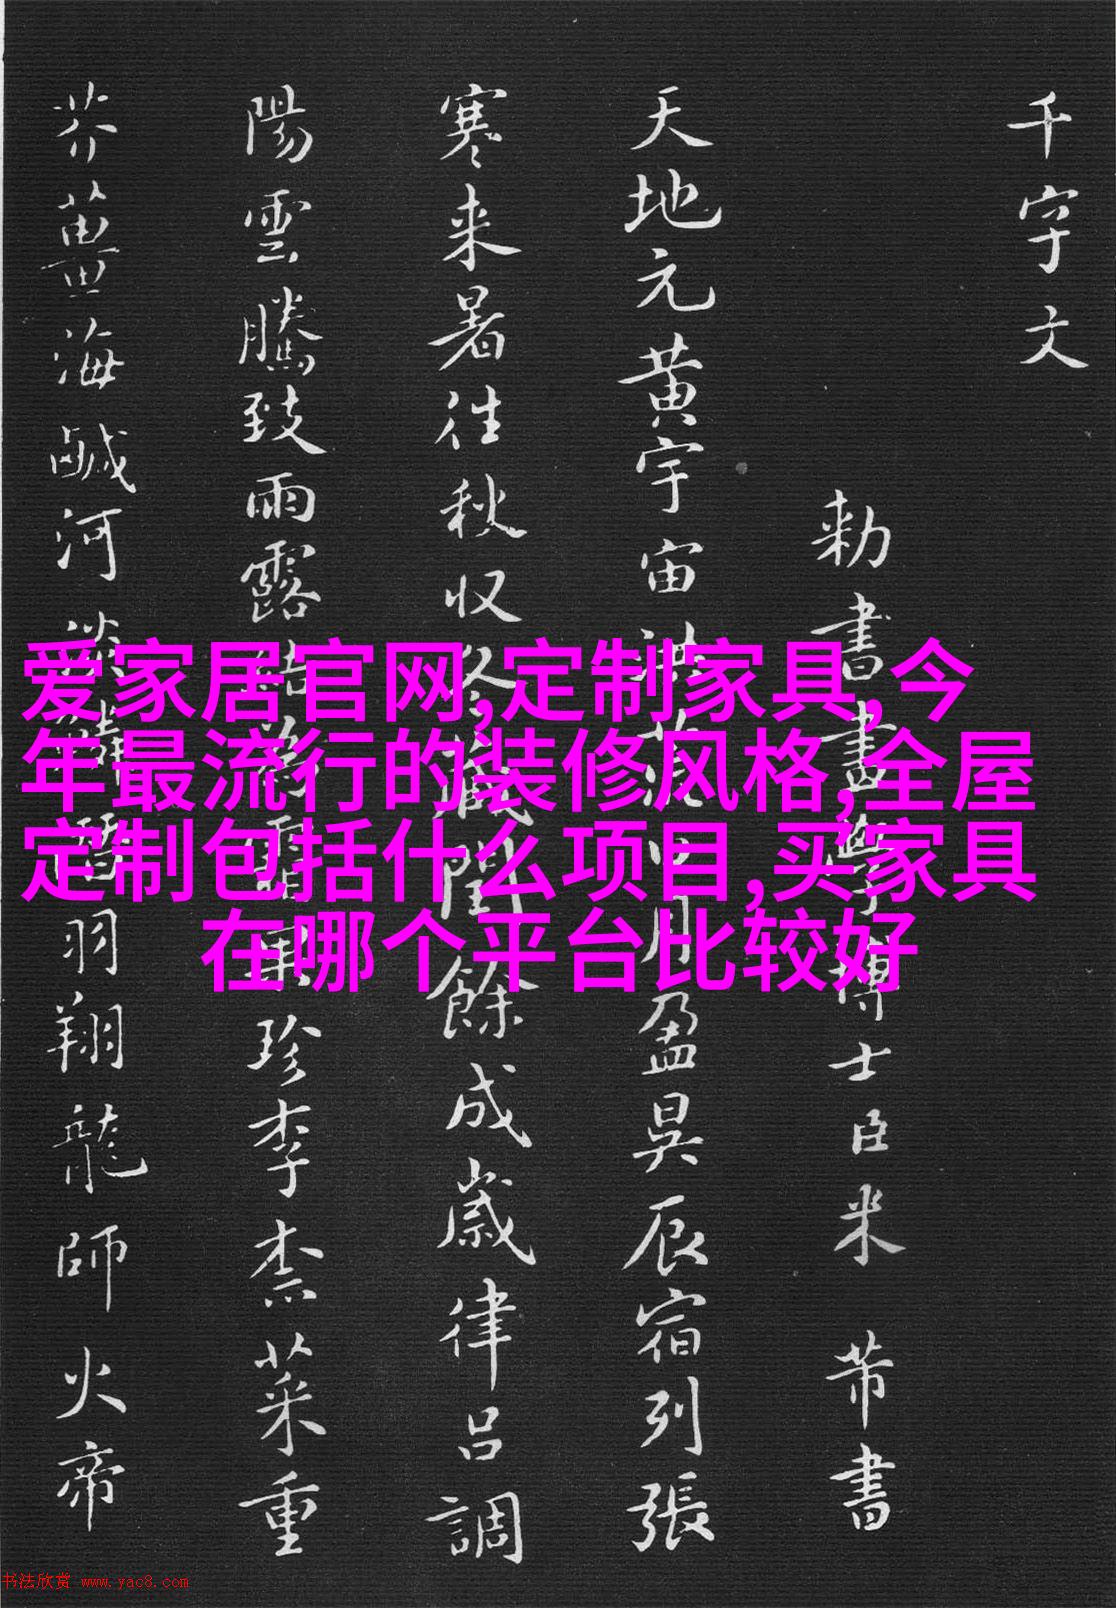 千字文
勅書畫學博士臣米芾書
天地元黄宇宙洪荒日月盈昃辰宿列張
寒来暑往秋収冬藏閏餘成歲律呂調
陽雲騰致雨露結為霜果珍李柰菜重
芥薑海鹹河淡鱗潛羽翔龍師火帝
爱家居官网,定制家具,今
年最流行的装修风格,全屋
定制包括什么项目,买家具
在哪个平台比较好
书法欣赏 www.yac8.com